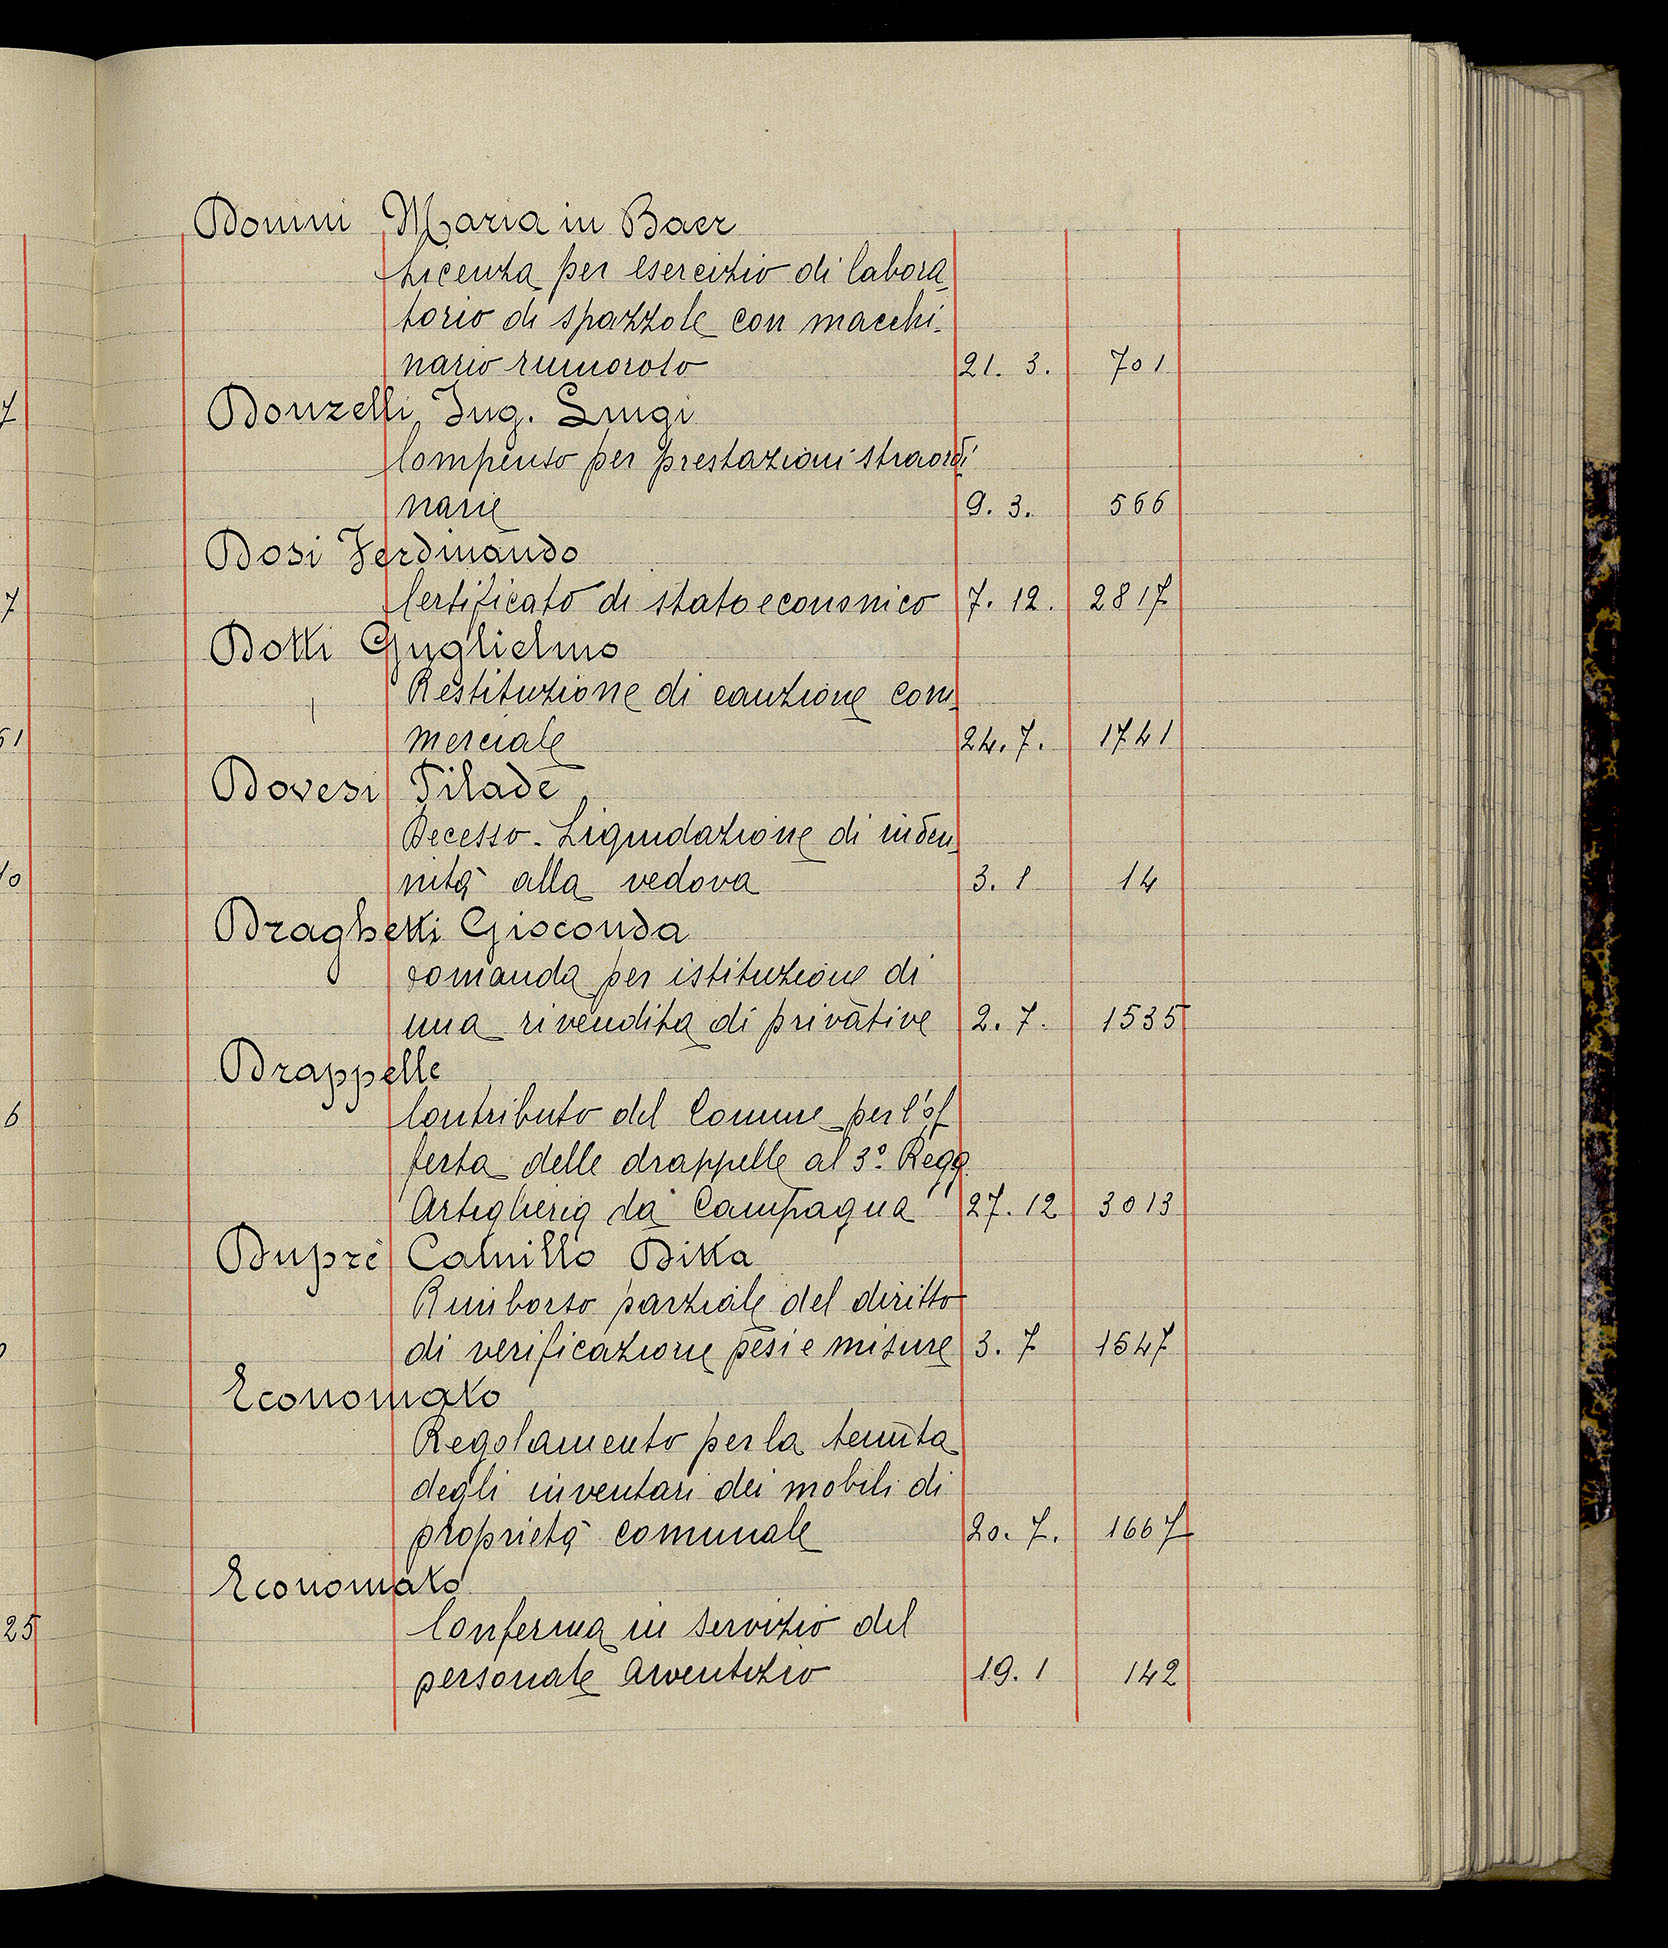 Donini Maria in Baer
Licenza per esercizio di labora_
torio di spazzole con macchi_
nario rumoroso 21. 3. 701
Donzelli Ing. Luigi
Compenso per prestazioni straordi
narie 9. 3. 566
Dosi Ferdinando
Certificato di stato economico 7. 12. 2817
Dotti Guglielmo
Restituzione di cauzione com_
merciale 24. 7. 1741
Dovesi Pilade
Decesso. Liquidazione di inden_
nità alla vedova 3. 1 14
Draghetti Gioconda
Domanda per istituzione di
una rivendita di privative 2. 7. 1535
Drappelle
Contributo del Comune per l'of
ferta delle drappelle al 3º Regg
Artiglieria "da Campagna" 27. 12 3013
Duprè Camillo Ditta
Rimborso parziale del diritto
di verificazione pesi e misure 3. 7 1547
Economato
Regolamento per la tenuta
degli inventari dei mobili di
proprietà comunale 20. 7. 1667
Economato
Conferma in servizio del
personale avventizio 19. 1 142
7
7
51
10
6
25